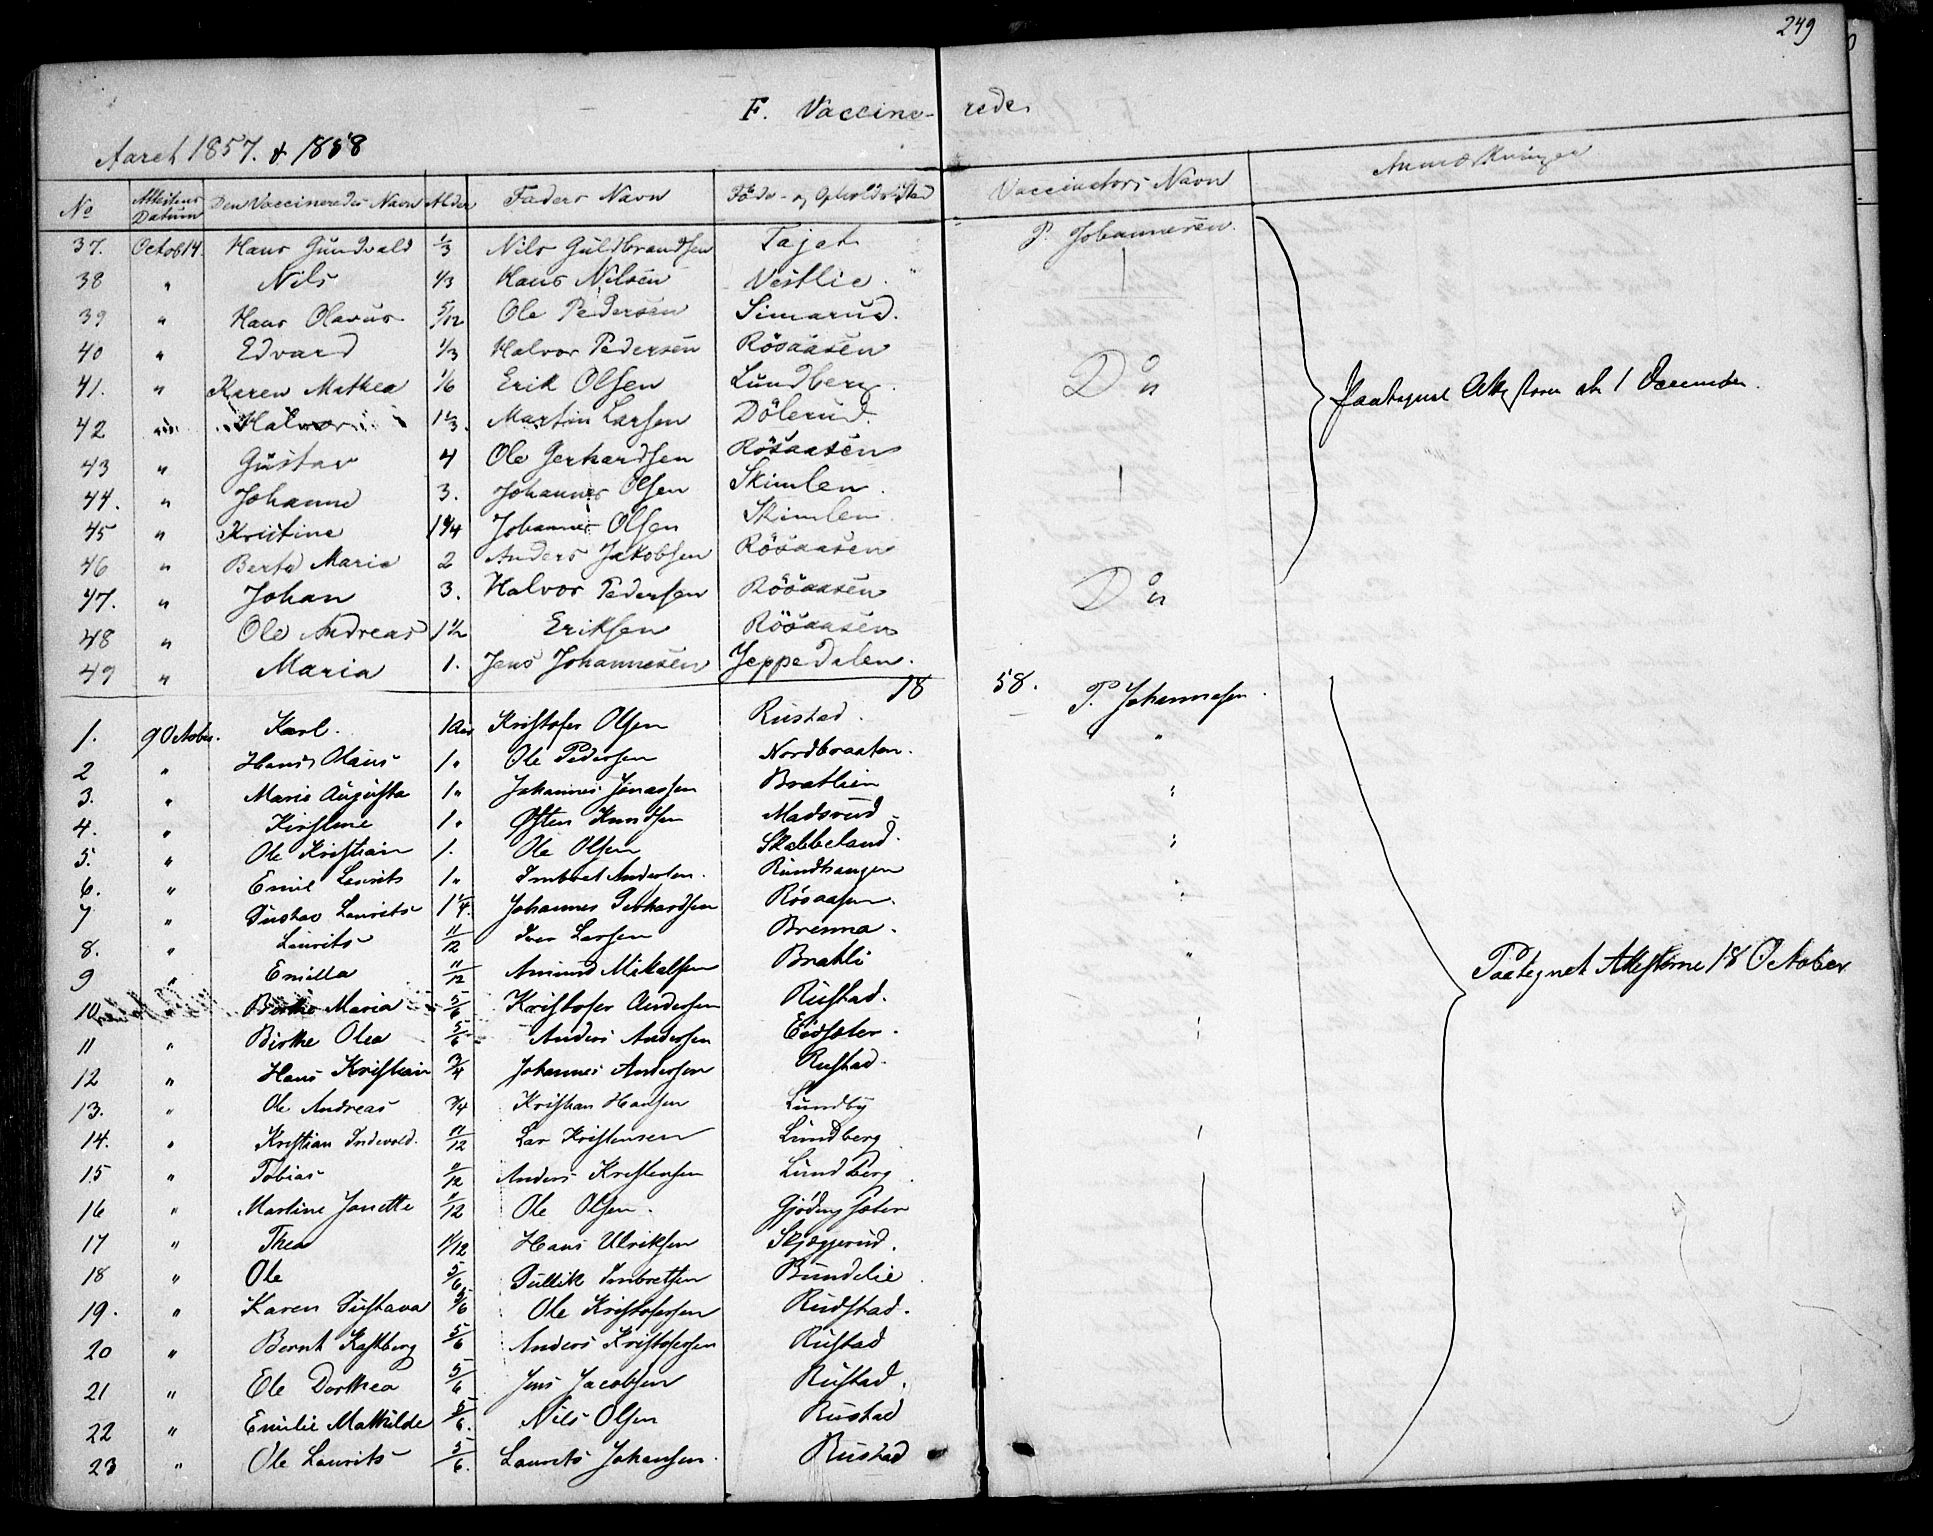 249
F. Vaccine- rede
Aaret 1857. & 1858
No Attestens Datum Den Vaccineredes Navn Alder Faders Navn Föde- og Opholdssted Vaccinators Navn Anmærkninger
37. Octob 14. Hans Gundvald 1/3 Nils Guldbrandsen Tajet P. Johannesen.
38 " Nils 1/3 Hans Nilsen Vestlie.
39 " Hans Olavus 5/12 Ole Pedersen Simarud.
40 " Edvard 1/3 Halvor Pedersen Rösaasen Do
41. " Karen Mathea 1/6 Erik Olsen Lundberg. Paategnet den 1 December.
42 " Halvor 1 1/3. Martin Larsen Dölerud.
43 " Gustav 4 Ole Gerhardsen Rösaasen
44. " Johanne 3. Johannes Olsen Skimlen.
45 " Kristine 1 3/4 Johannes Olsen Skimlen
46 " Berte Marie 2 Anders Jakobsen Rösaasen
47. " Johan 3. Halvor Pedersen Rösaasen Do
48 " Ole Andreas 1 1/2 Eriksen Rösaasen
49 " Maria 1. Jens Johannesen Jeppedalen.
18 58.
1. 9 October. Karl. 1 Aar Kristofer Olsen Rustad. P. Johannesen.
2 " Hans Olaus 1 " Ole Pedersen Nordbraaten. "
3. " Marie Augusta 1 " Johannes Jonassen Bratlien "
4. " Kirstine 1 " Østen Knudsen Madsrud
5. " Ole Kristian 1. Ole Olsen Skabbeland. "
6. " Emil Laurits 1 " Imbret Andersen. Rundhaugen "
7 " Gustav Laurits 1 1/4. Johannes Gerhardsen Rösaasen.
8. " Laurits 11/12 Iver Larsen Brenna. "
9 " Emilla 11/12 Amund Mikalsen Bratli
10. " Birthe Maria 5/6 Kristofer Andersen Rustad. Paategnet Attesterne 18 October
11 " Birthe Olea 5/6 Anders Andersen Eidsæter.
12 " Hans Kristian 3/4 Johannes Andersen Rustad.
13. " Ole Andreas 3/4 Kristian Hansen Lundby
14. " Kristian Indevold. 11/12 Lar Kristensen Lundberg
15 " Tobias 11/12 Anders Kristensen Lundberg
16 " Martine Janette 11/12 Ole Olsen. Gjödingsæter
17 " Thea 11/12 Hans Ulriksen Skjæggerud.
18 " Ole 5/6 Gullik Imbretsen Bundelie
19. " Karen Gustava 5/6 Ole Kristofersen Rudstad.
20 " Bernt Kastberg 5/6 Anders Kristofersen Rustad
21 " Ole Dorthea 5/6 Jens Jacobsen Rustad.
22 " Emilie Mathilde 5/6. Nils Olsen Rustad
23 " Ole Laurits 5/6. Laurits Johansen. Rustad